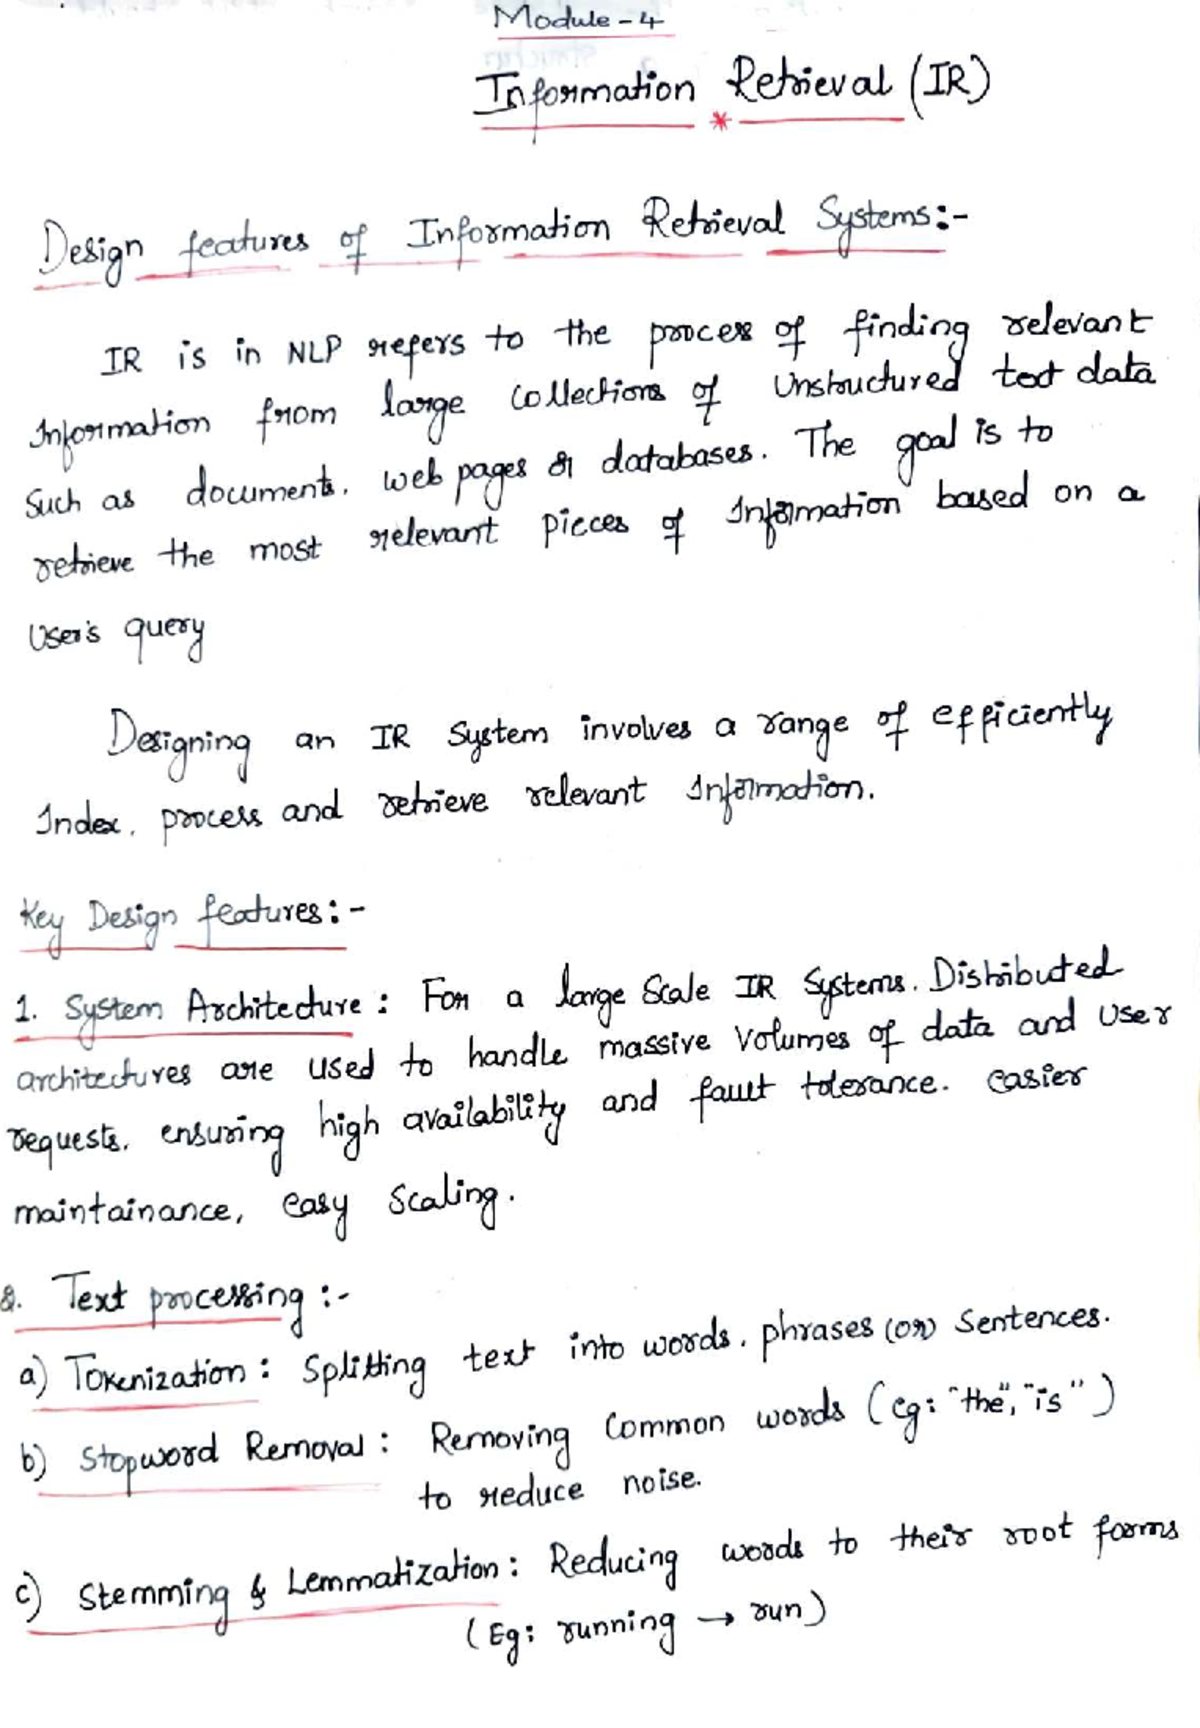 Module - 4
Information Retrieval (IR)
Design features of Information Retrieval Systems:-
IR is in NLP refers to the process of finding relevant
Information from large collections of Unstructured text data
Such as documents, web pages or databases. The goal is to
retrieve the most relevant pieces of Information based on a
User's query
Designing an IR System involves a range of efficiently
Index, process and retrieve relevant Information.
Key Design features:-
1. System Architecture: For a large Scale IR Systems. Distributed
architectures are used to handle massive Volumes of data and user
requests, ensuring high availability and fault tolerance. easier
maintainance, easy Scaling.
2. Text processing:-
a) Tokenization: Splitting text into words, phrases (or) Sentences.
b) Stopword Removal: Removing Common words (eg: "the", "is")
to reduce noise.
c) Stemming & Lemmatization: Reducing words to their root forms
(Eg: running → run)